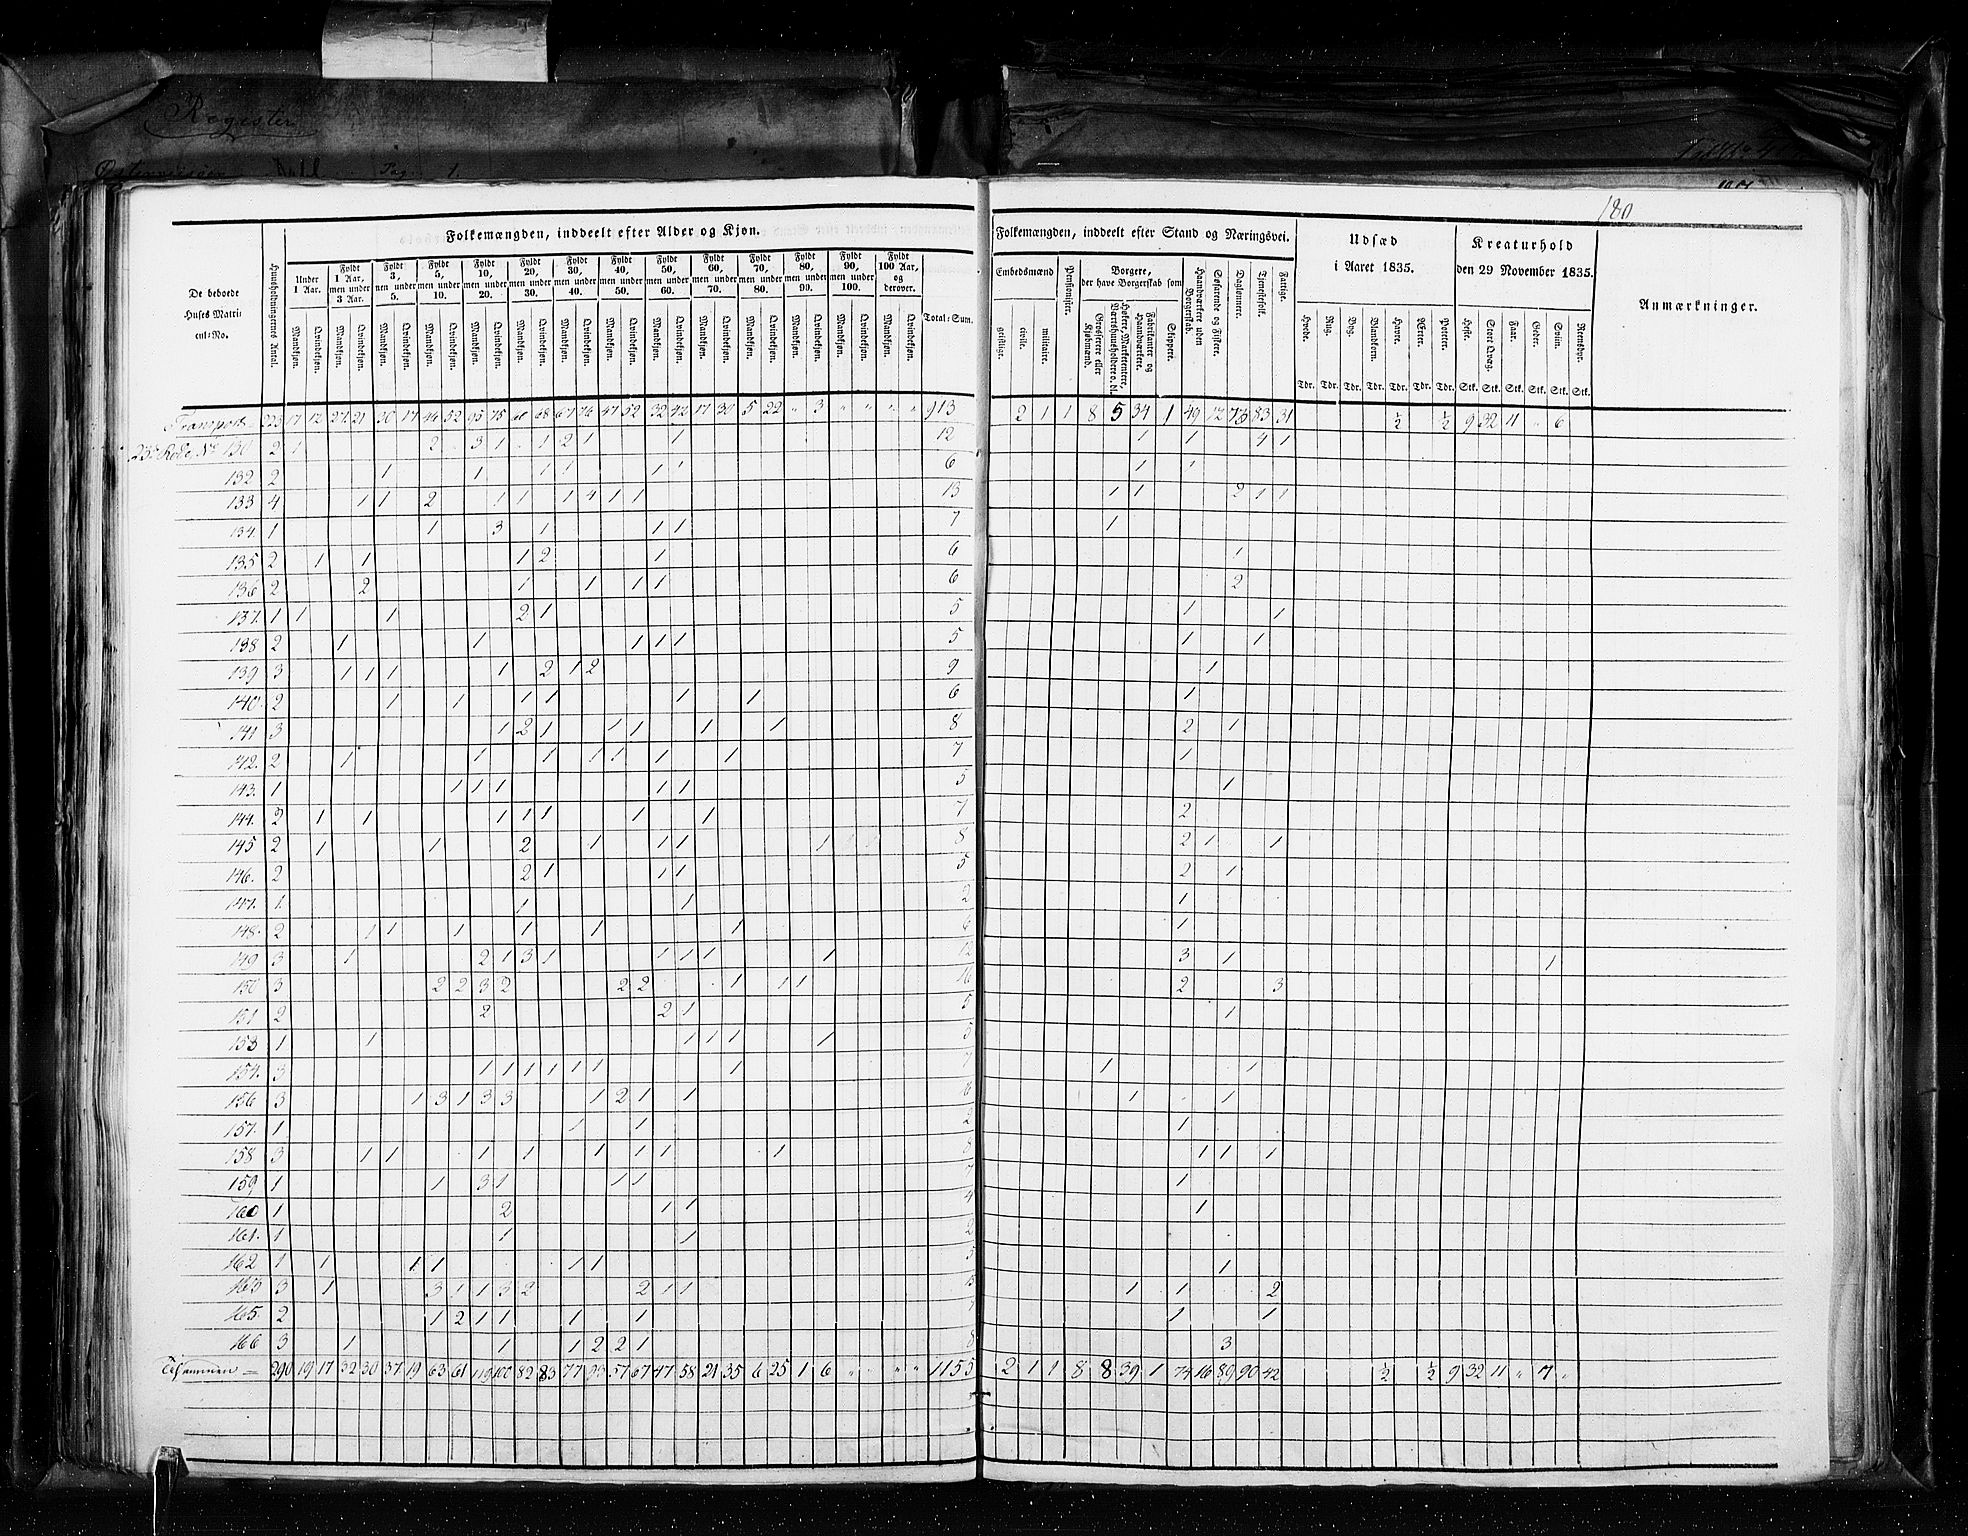 Register
Pag. 1.
180
Folkemængden, inddeelt efter Alder og Kjøn.
Folkemængden, inddeelt efter Stand og Næringsvei.
Udsæd i Aaret 1835.
Kreaturhold den 29 November 1835.
Anmærkninger.
De beboede Huses Matricul-No.
Huusholdningernes Antal.
Under 1 Aar.
Fyldt 1 Aar, men under 3 Aar.
Fyldt 3, men under 5.
Fyldt 5, men under 10.
Fyldt 10, men under 20.
Fyldt 20, men under 30.
Fyldt 30, men under 40.
Fyldt 40, men under 50.
Fyldt 50, men under 60.
Fyldt 60, men under 70.
Fyldt 70, men under 80.
Fyldt 80, men under 90.
Fyldt 90, men under 100.
Fyldt 100 Aar, og derover.
Total-Sum.
Mandkjøn. Qvindekjøn. Mandkjøn. Qvindekjøn. Mandkjøn. Qvindekjøn. Mandkjøn. Qvindekjøn. Mandkjøn. Qvindekjøn. Mandkjøn. Qvindekjøn. Mandkjøn. Qvindekjøn. Mandkjøn. Qvindekjøn. Mandkjøn. Qvindekjøn. Mandkjøn. Qvindekjøn. Mandkjøn. Qvindekjøn. Mandkjøn. Qvindekjøn. Mandkjøn. Qvindekjøn. Mandkjøn. Qvindekjøn.
Embedsmænd
geistlige. civile. militaire.
Pensionister.
Borgere, der have Borgerskab som
Grosserere eller Kjøbmænd.
Høkere, Marketentere, Værtshuusholdere o. dl.
Fabrikanter og Haandværkere.
Skippere.
Haandværkere uden Borgerskab.
Søefarende og Fiskere.
Daglønnere.
Tjenestefolk.
Fattige.
Hvede. Rug. Byg. Blandkorn. Havre. Erter. Poteter.
Tdr. Tdr. Tdr. Tdr. Tdr. Tdr. Tdr.
Heste. Stort Qvæg. Faar. Geder. Sviin. Rensdyr.
Stk. Stk. Stk. Stk. Stk. Stk.
Transport 223 17 12 27 21 30 17 44 52 95 75 68 67 76 47 52 32 42 17 30 5 22 " 3 " " " " 913 2 1 1 8 5 34 1 49 12 73 83 31 ½ ½ 9 32 11 " 6 "
23de Rode, No 130 2 1 2 3 1 1 2 1 1 12 1 1 4 1
132 2 1 1 1 1 1 1 6 1 1
133 4 1 1 2 1 1 1 4 1 1 13 1 1 2 1 1
134. 1 1 3 1 1 1 7 1
135 2 1 1 1 2 1 6 1
136 2 2 1 1 1 1 6 2
137. 1 1 1 2 1 5 1 1
138 2 1 1 1 1 1 5 1 1
139 3 1 1 1 1 2 1 2 9 1
140. 2 1 1 1 1 1 1 6 1
141 3 1 2 1 1 1 1 1 8 2 1
142. 2 1 1 1 1 1 1 1 7 1
143. 1 1 1 1 1 1 5 1
144. 2 1 1 1 1 1 1 1 7 2
145 2 1 1 2 1 1 1 1 8 2 1 1
146. 2 2 1 1 1 5 2 1
147. 1. 1 1 2 1
148. 2 1 1 1 1 1 1 6 1
149 3 1 2 1 3 1 1 1 1 1 12 3 1 1
150 3 2 2 3 2 2 2 1 1 1 16 2 3
151 2 2 2 1 5 1
153 1 1 1 1 1 1 5
154. 3 1 1 1 1 1 1 1 7 1 1
156 3 1 3 1 3 3 1 2 1 1 16 1 1
157. 1 1 1 2 1
158 3 1 1 1 1 1 1 1 1 8 1 1 1
159 1 1 3 1 1 1 7 1
160 1 2 1 1 4 1
161. 1 1 1 2
162 1 1 1 1 1 1 5 1
163 3 1 3 1 1 3 2 2 1 1 15 1 1 2
165. 2 1 2 1 1 1 1 7 1 1
166 3 1 1 1 2 2 1 8 3
Tilsammen = 290 19 17 32 30 37 19 63 61 119 100 82 83 77 93 57 67 47 58 21 35 6 25 1 6 " " " 1155 2 1 1 8 8 39 1 74 16 89 90 42 ½ ½ 9 32 11 " 7 "